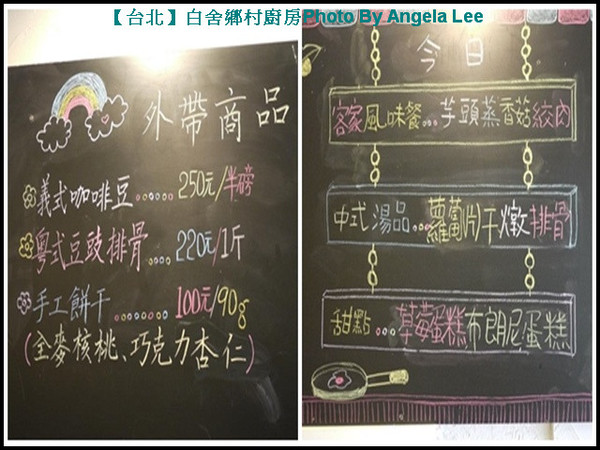 【台北】白舍鄉村廚房Photo By Angela Lee
外帶商品
義式咖啡豆......250元/半磅
粵式豆豉排骨....220元/1斤
手工餅干.......100元/90g
(全麥核桃、巧克力杏仁)
今日
客家風味餐...芋頭蒸香菇絞肉
中式湯品...蘿蔔片干燉排骨
甜點...草莓蛋糕布朗尼蛋糕